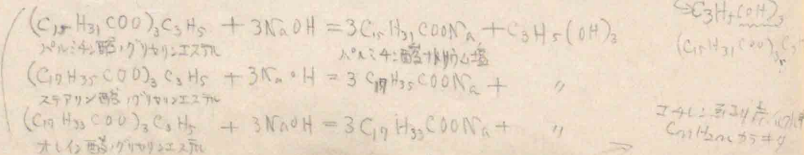 (C₁₅H₃₁COO)₃C₃H₅ + 3NaOH = 3C₁₅H₃₁COONa + C₃H₅(OH)₃
パルミチン酸グリセリンエステル パルミチン酸ナトリウム塩
(C₁₇H₃₅COO)₃C₃H₅ + 3NaOH = 3C₁₇H₃₅COONa + 〃
ステアリン酸グリセリンエステル
(C₁₇H₃₃COO)₃C₃H₅ + 3NaOH = 3C₁₇H₃₃COONa + 〃
オレイン酸グリセリンエステル
C₃H₅(OH)₃
(C₁₅H₃₁COO)₃C₃H₅
エチレン